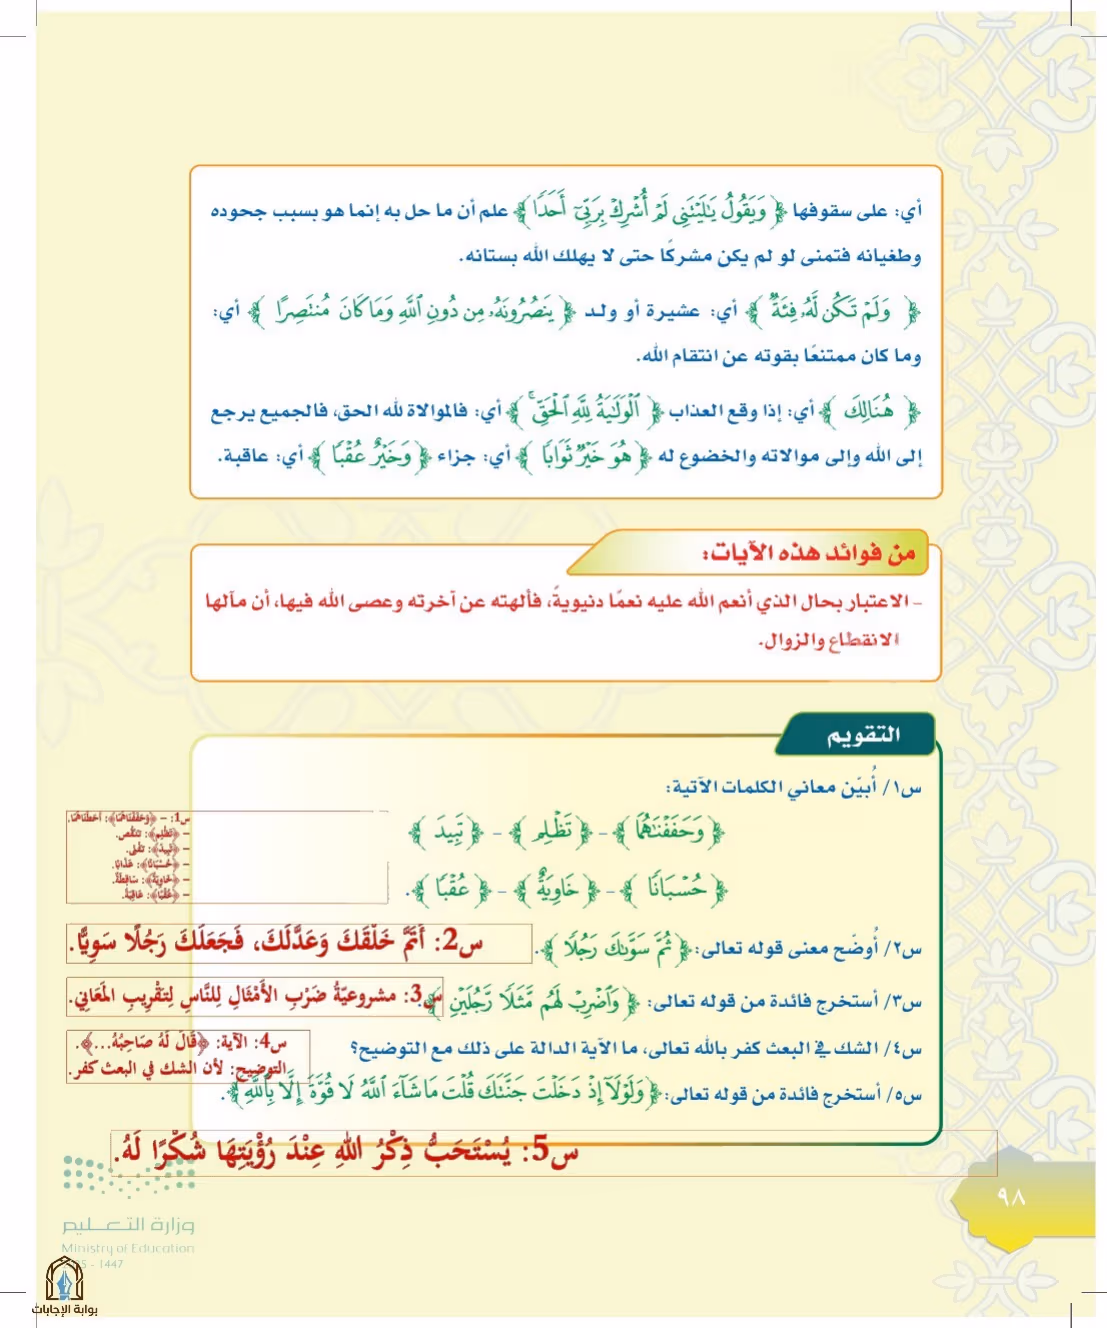 أي: على سقوفها ﴿ وَيَقُولُ يَـٰلَيْتَنِي لَمْ أُشْرِكْ بِرَبِّيٓ أَحَدًا ﴾ علم أن ما حل به إنما هو بسبب جحوده
وطغيانه فتمنى لو لم يكن مشركًا حتى لا يهلك الله بستانه.
﴿ وَلَمْ تَكُن لَّهُۥ فِئَةٌ ﴾ أي: عشيرة أو ولد ﴿ يَنصُرُونَهُۥ مِن دُونِ ٱللَّهِ وَمَا كَانَ مُنتَصِرًا ﴾ أي:
وما كان ممتنعًا بقوته عن انتقام الله.
﴿ هُنَالِكَ ﴾ أي: إذا وقع العذاب ﴿ ٱلْوَلَـٰيَةُ لِلَّهِ ٱلْحَقِّ ۚ ﴾ أي: فالموالاة لله الحق، فالجميع يرجع
إلى الله وإلى موالاته والخضوع له ﴿ هُوَ خَيْرٌ ثَوَابًا ﴾ أي: جزاء ﴿ وَخَيْرٌ عُقْبًا ﴾ أي: عاقبة.
من فوائد هذه الآيات:
- الاعتبار بحال الذي أنعم الله عليه نعمًا دنيويةً، فألهته عن آخرته وعصى الله فيها، أن مآلها
الانقطاع والزوال.
التقويم
س١/ أُبيّن معاني الكلمات الآتية:
﴿ وَحَفَفْنَـٰهُمَا ﴾ - ﴿ تَظْلِم ﴾ - ﴿ تَبِيدَ ﴾
﴿ حُسْبَانًا ﴾ - ﴿ خَاوِيَةٌ ﴾ - ﴿ عُقْبًا ﴾.
س1: – ﴿وَحَفَفْنَاهُمَا﴾: أَحَطْنَاهُمَا.
– ﴿تَظْلِم﴾: تنقُص.
– ﴿تَبِيدَ﴾: تفنى.
– ﴿حُسْبَانًا﴾: عَذَابًا.
– ﴿خَاوِيَةٌ﴾: سَاقِطَةٌ.
– ﴿عُقْبًا﴾: عَاقِبَةً.
س٢/ أُوضّح معنى قوله تعالى: ﴿ ثُمَّ سَوَّىٰكَ رَجُلًا ﴾.
س2: أَتَمَّ خَلْقَكَ وَعَدَّلَكَ، فَجَعَلَكَ رَجُلًا سَوِيًّا.
س٣/ أستخرج فائدة من قوله تعالى: ﴿ وَٱضْرِبْ لَهُم مَّثَلًا رَّجُلَيْنِ ﴾
س3: مشروعيّةُ ضَرْبِ الأَمْثَالِ لِلنَّاسِ لِتَقْرِيبِ المَعَانِي.
س٤/ الشك في البعث كفر بالله تعالى، ما الآية الدالة على ذلك مع التوضيح؟
س4: الآية: ﴿قَالَ لَهُ صَاحِبُهُ...﴾.
التوضيح: لأن الشك في البعث كفر.
س٥/ أستخرج فائدة من قوله تعالى: ﴿ وَلَوْلَآ إِذْ دَخَلْتَ جَنَّتَكَ قُلْتَ مَا شَآءَ ٱللَّهُ لَا قُوَّةَ إِلَّا بِٱللَّهِ ﴾.
س5: يُسْتَحَبُّ ذِكْرُ اللهِ عِنْدَ رُؤْيَتِهَا شُكْرًا لَهُ.
٩٨
وزارة التعليم
Ministry of Education
5 - 1447
بوابة الإجابات